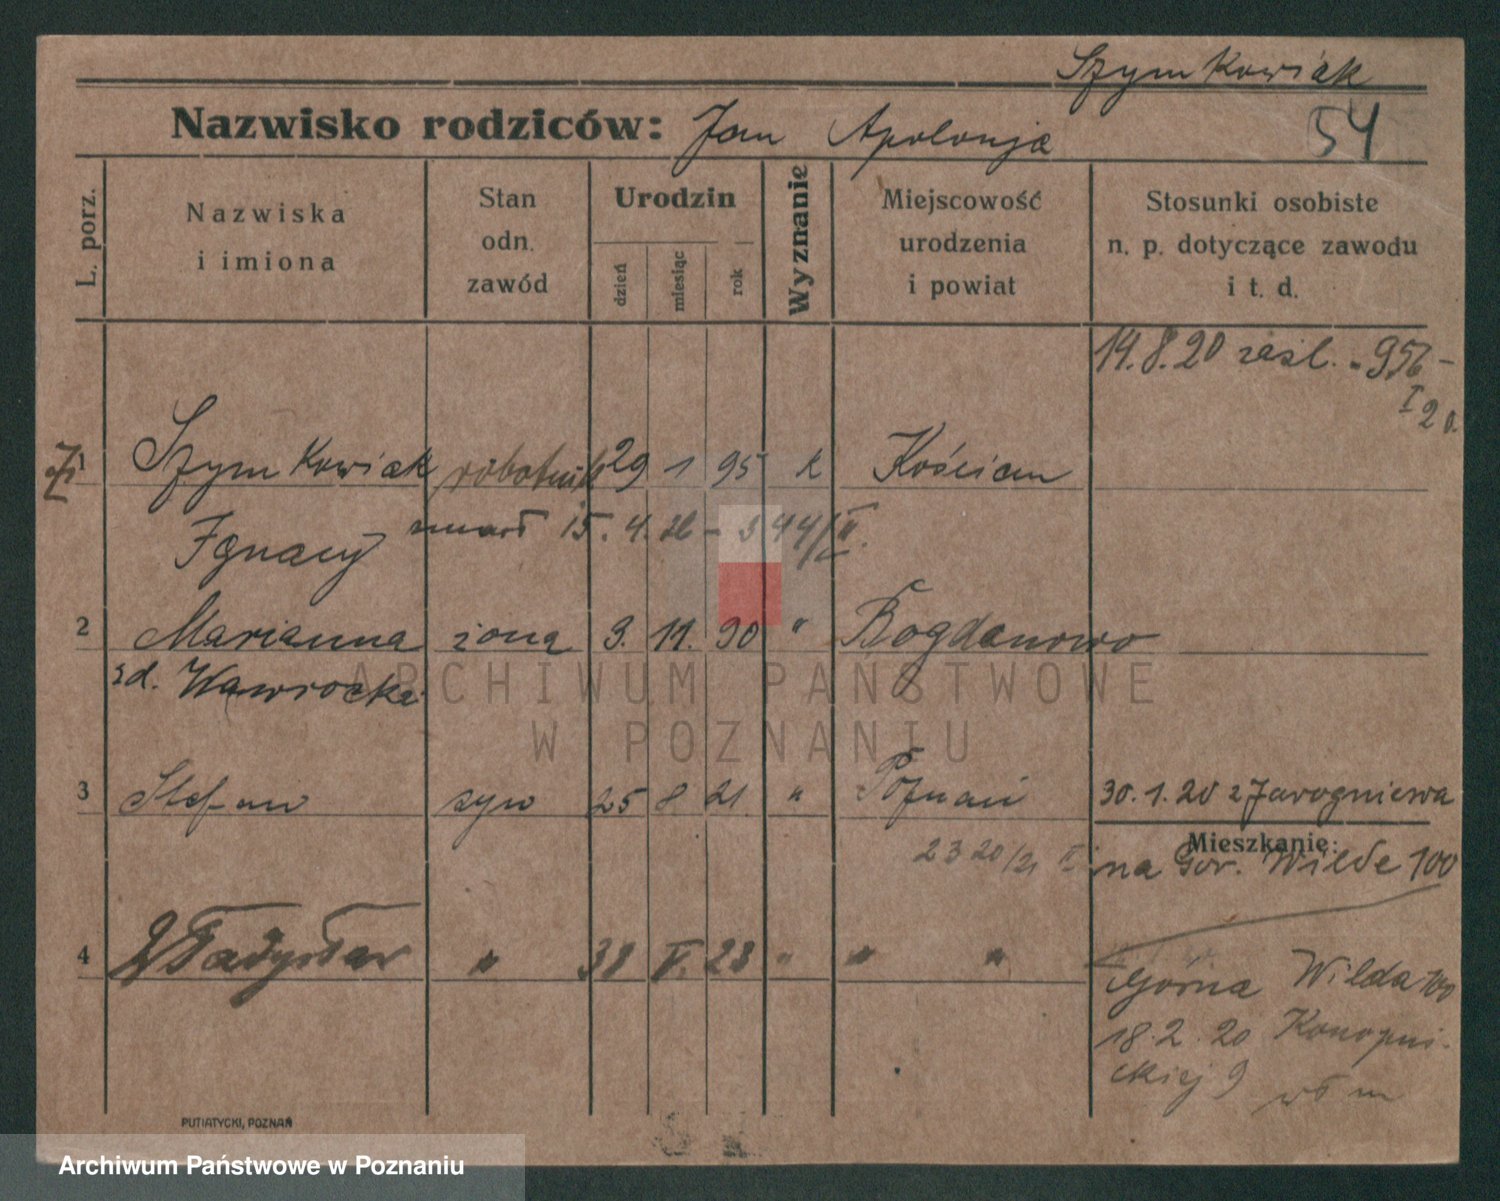 Szymkowiak
Nazwisko rodziców: Jan Apolonja
54
L. porz.
Nazwiska i imiona
Stan odn. zawód
Urodzin
dzień
miesiąc
rok
Wyznanie
Miejscowość urodzenia i powiat
Stosunki osobiste n. p. dotyczące zawodu i t. d.
14.8.20 zaśl. - 956 -
I 20.
1 Szymkowiak robotnik 29 1 95 k Kościan
Ignacy zmarł 15. 4. 26 - 344/II.
2 Marianna żona 9. 11. 90 " Bogdanowo
zd. Wawrocka
3 Stefan syn 25 8 21 " Poznań 30.1.20 z Jarogniewa
Mieszkanie:
2320/21 II na Gór. Wilde 100
4 Władysław " V. 28 " " "
Górna Wilda 100
18.2.20 Konopni-
ckiej 9
PUTIATYCKI, POZNAŃ
ARCHIWUM PAŃSTWOWE
W POZNANIU
Archiwum Państwowe w Poznaniu